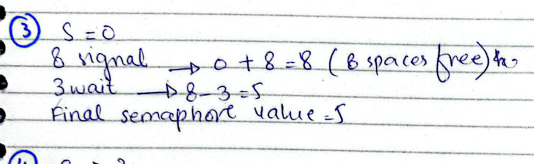 ③ S = 0
8 signal → 0 + 8 = 8 (8 spaces free)
3 wait → 8 - 3 = 5
Final semaphore value = 5